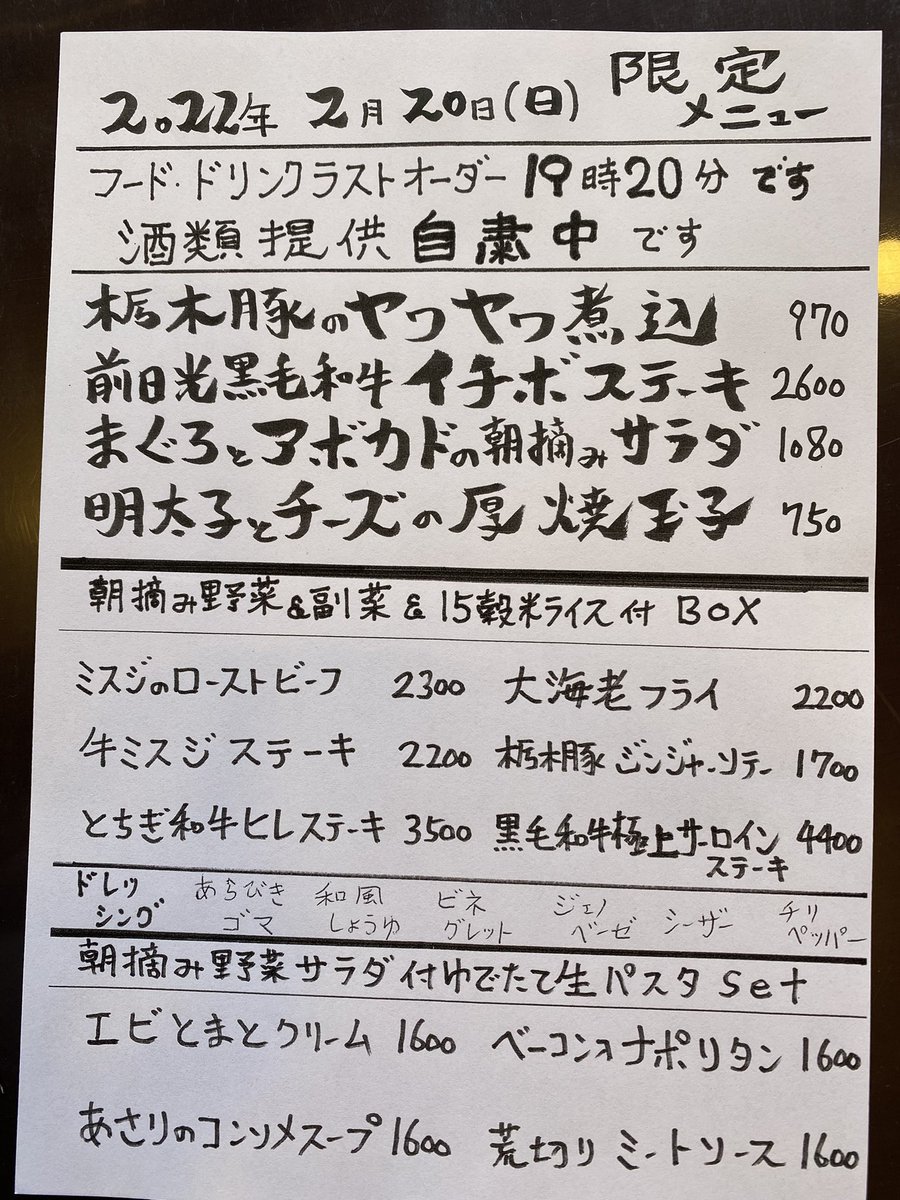 2022年 2月 20日(日) 限定メニュー
フード・ドリンクラストオーダー 19時20分 です
酒類提供 自粛中 です
栃木豚のヤワヤワ煮込 970
前日光黒毛和牛イチボステーキ 2600
まぐろとアボカドの朝摘みサラダ 1080
明太子とチーズの厚焼玉子 750
朝摘み野菜&副菜&15穀米ライス付 BOX
ミスジのローストビーフ 2300 大海老フライ 2200
牛ミスジステーキ 2200 栃木豚ジンジャーソテー 1700
とちぎ和牛ヒレステーキ 3500 黒毛和牛極上サーロインステーキ 4400
ドレッシング あらびきゴマ 和風しょうゆ ビネグレット ジェノベーゼ シーザー チリペッパー
朝摘み野菜サラダ付ゆでたて生パスタ Set
エビとまとクリーム 1600 ベーコンナポリタン 1600
あさりのコンソメスープ 1600 荒切りミートソース 1600